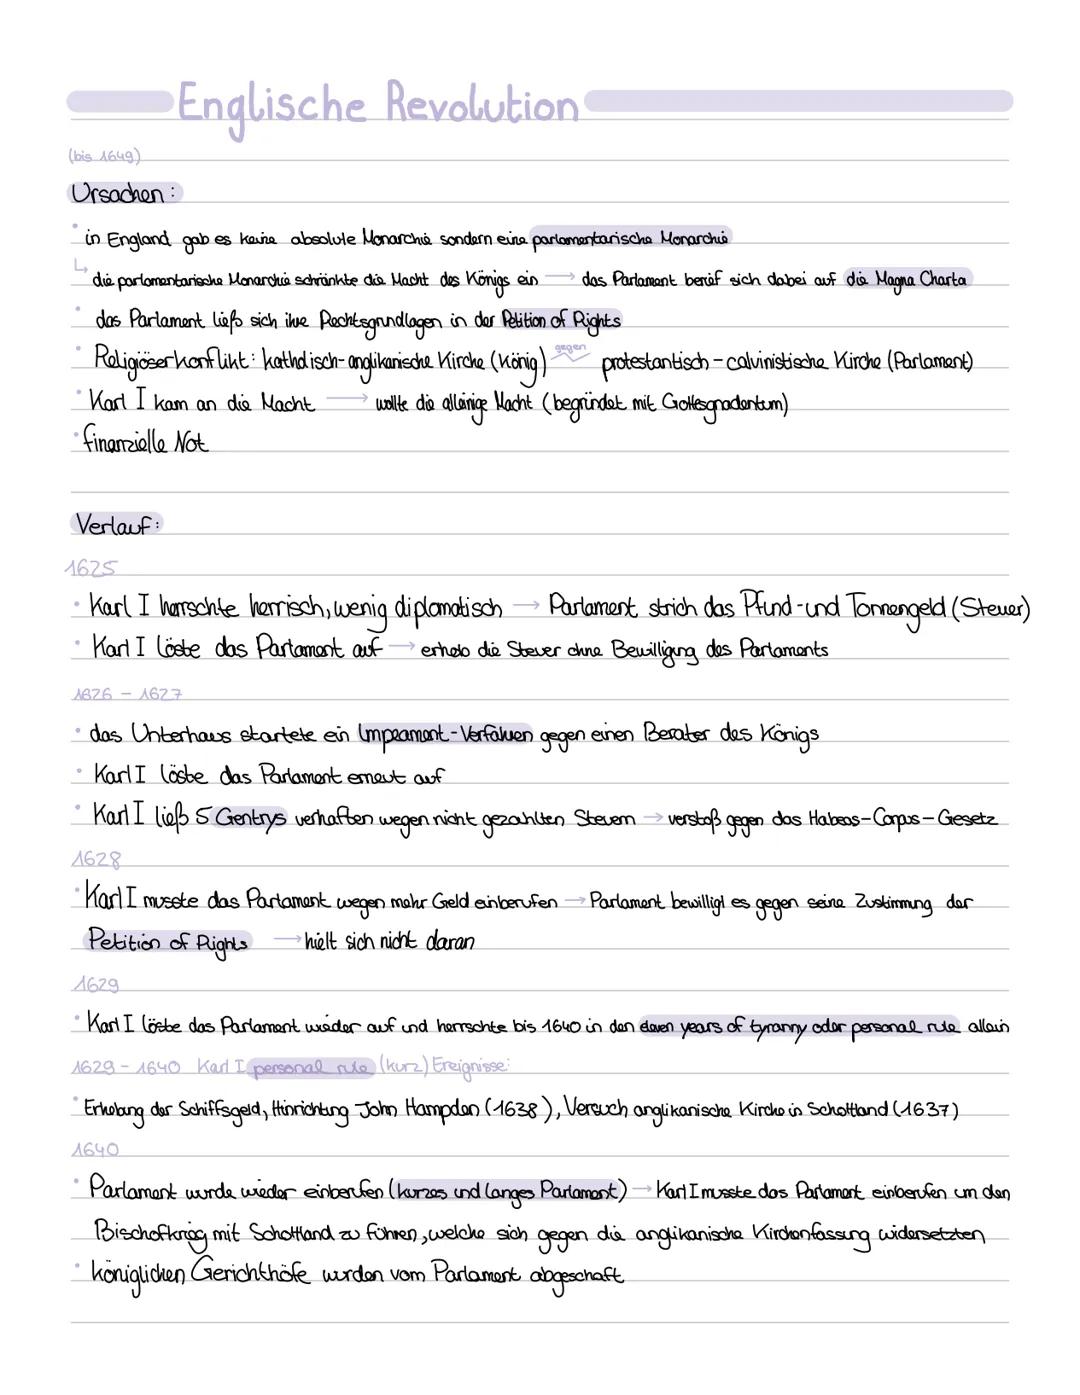 Englische Revolution
(bis 1649)
Ursachen:
• in England gab es keine absolute Monarchie sondern eine parlamentarische Monarchie
↳ die parlamentarische Monarchie schränkte die Macht des Königs ein → das Parlament berief sich dabei auf die Magna Charta
• das Parlament ließ sich ihre Rechtsgrundlagen in der Petition of Rights
• Religiöser konflikt: katholisch-anglikanische Kirche (König) gegen protestantisch-calvinistische Kirche (Parlament)
• Karl I kam an die Macht → wollte die alleinige Macht (begründet mit Gottesgnadentum)
• finanzielle Not
Verlauf:
1625
• Karl I herrschte herrisch, wenig diplomatisch → Parlament strich das Pfund-und Tonnengeld (Steuer)
• Karl I löste das Parlament auf → erhob die Steuer ohne Bewilligung des Parlaments
1626 - 1627
• das Unterhaus startete ein Impeament-Verfahren gegen einen Berater des Königs
• Karl I löste das Parlament erneut auf
• Karl I ließ 5 Gentrys verhaften wegen nicht gezahlten Steuern → verstoß gegen das Habeas-Corpus-Gesetz
1628
• Karl I musste das Parlament wegen mehr Geld einberufen → Parlament bewilligt es gegen seine Zustimmung der
Petition of Rights → hielt sich nicht daran
1629
• Karl I löste das Parlament wieder auf und herrschte bis 1640 in den eleven years of tyranny oder personal rule allein
1629 - 1640 Karl I personal rule (kurz) Ereignisse:
• Erhebung der Schiffsgeld, Hinrichtung John Hampden (1638), Versuch anglikanische Kirche in Schottland (1637)
1640
• Parlament wurde wieder einberufen (kurzes und langes Parlament) → Karl I musste das Parlament einberufen um den
Bischofkrieg mit Schottland zu führen, welche sich gegen die anglikanische Kirchenfassung widersetzten
• königlichen Gerichthöfe wurden vom Parlament abgeschaft